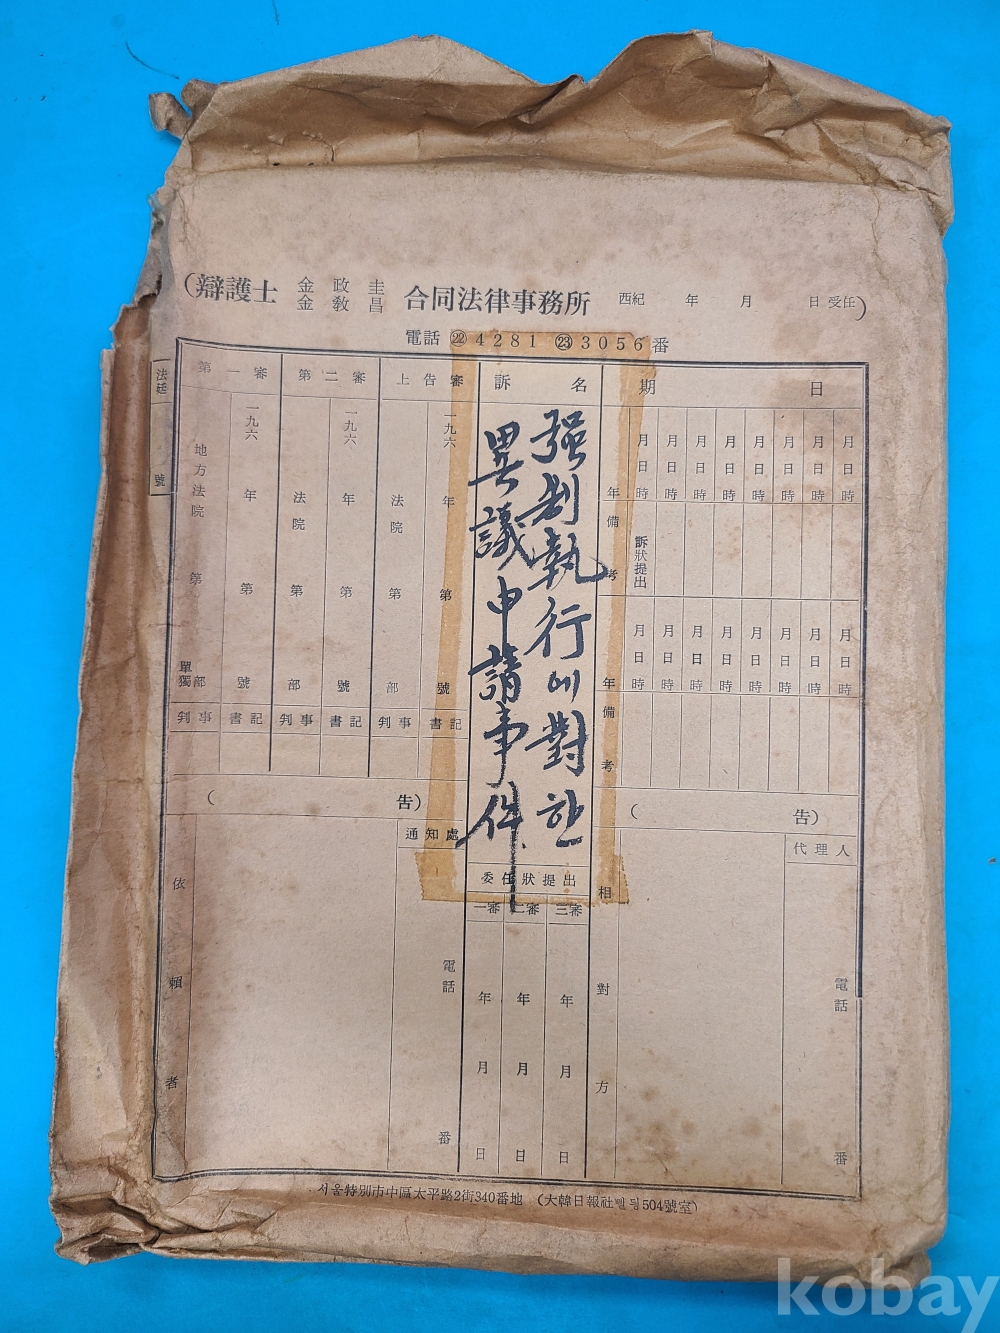 (辯護士 金政圭 金敎昌 合同法律事務所 西紀 年 月 日 受任)
電話 ㉒4281 ㉓3056番
期 日
月日時 月日時 月日時 月日時 月日時 月日時 月日時 月日時
年
備考
訴狀提出
月日時 月日時 月日時 月日時 月日時 月日時 月日時 月日時
年
備考
訴名
强制執行에對한
異議申請事件
上告審
一九六 年 第 號
法院 第 部
書記
判事
第二審
一九六 年 第 號
法院 第 部
書記
判事
第一審
一九六 年 第 號
地方法院 第 單獨部
書記
判事
法廷 號
( 告)
代理人
電話 番
相對方
委任狀提出
一審 二審 三審
年月日 年月日 年月日
( 告)
通知處
電話 番
依賴者
서울特別市中區太平路2街340番地 (大韓日報社삘딩504號室)
kobay